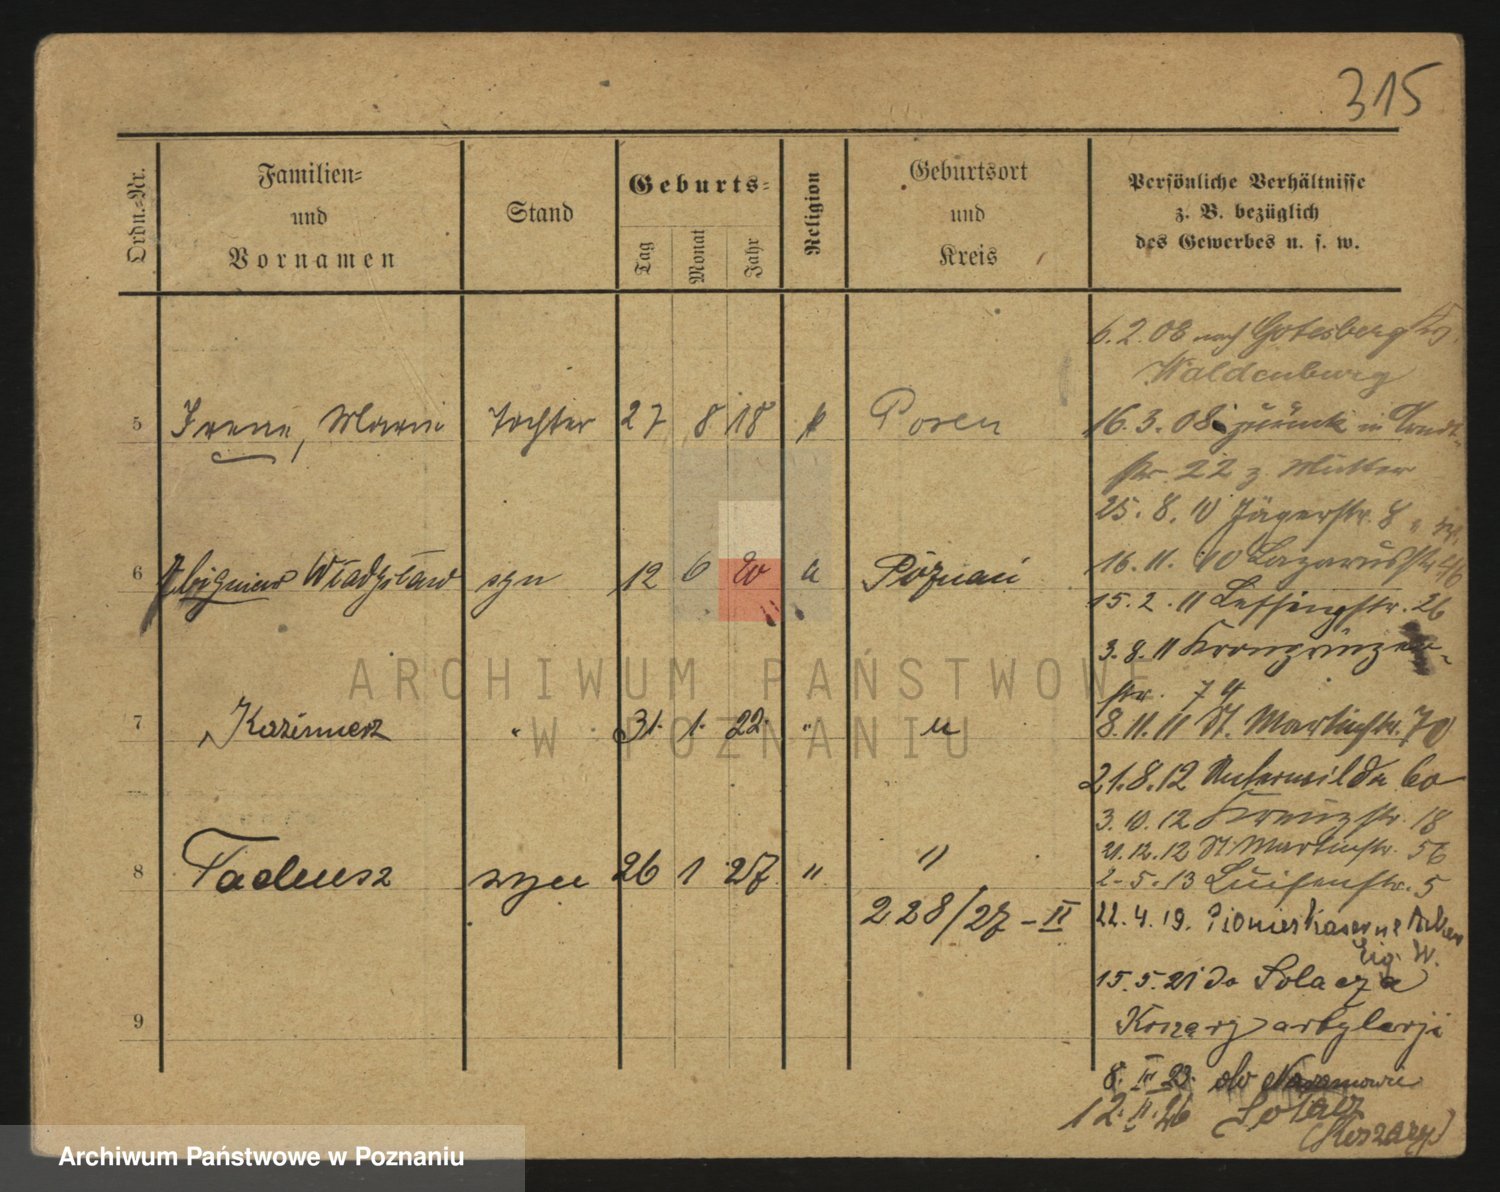 315
Ordn.-Nr.
Familien-
und
Vornamen
Stand
Geburts-
Tag
Monat
Jahr
Religion
Geburtsort
und
Kreis
Persönliche Verhältnisse
z. B. bezüglich
des Gewerbes u. s. w.
5 Irene, Marie Tochter 27 8 18 k Posen
6 Zbigniew Władysław syn 12 6 20 k Poznań
7 Kazimierz " 31. 1. 22. " "
8 Tadeusz syn 26 1 27 " "
228/27-II
9
6.2.08 nach Gotesberg Kr.
Waldenburg
16.3.08 zurück in
str. 22 z Mutter
25.8.10 Jägerstr. 8
16.11.10 Lazarusstr
15.2.11 Lessingstr. 26
3.8.11 Kronprinzen-
str. 74
8.11.11 St. Martinstr. 70
21.8.12 Unterwilda 60
3.10.12 Kreuzstr. 18
21.12.12 St Martinstr. 56
2-5.13 Luisenstr. 5
22.4.19. Pionierkaserne
Eig. W.
15.5.21 do Solacza
Koszary artylerji
8. III 23. do
12.II.26 Solacz
(Koszary)
ARCHIWUM PAŃSTWOWE
W POZNANIU
Archiwum Państwowe w Poznaniu